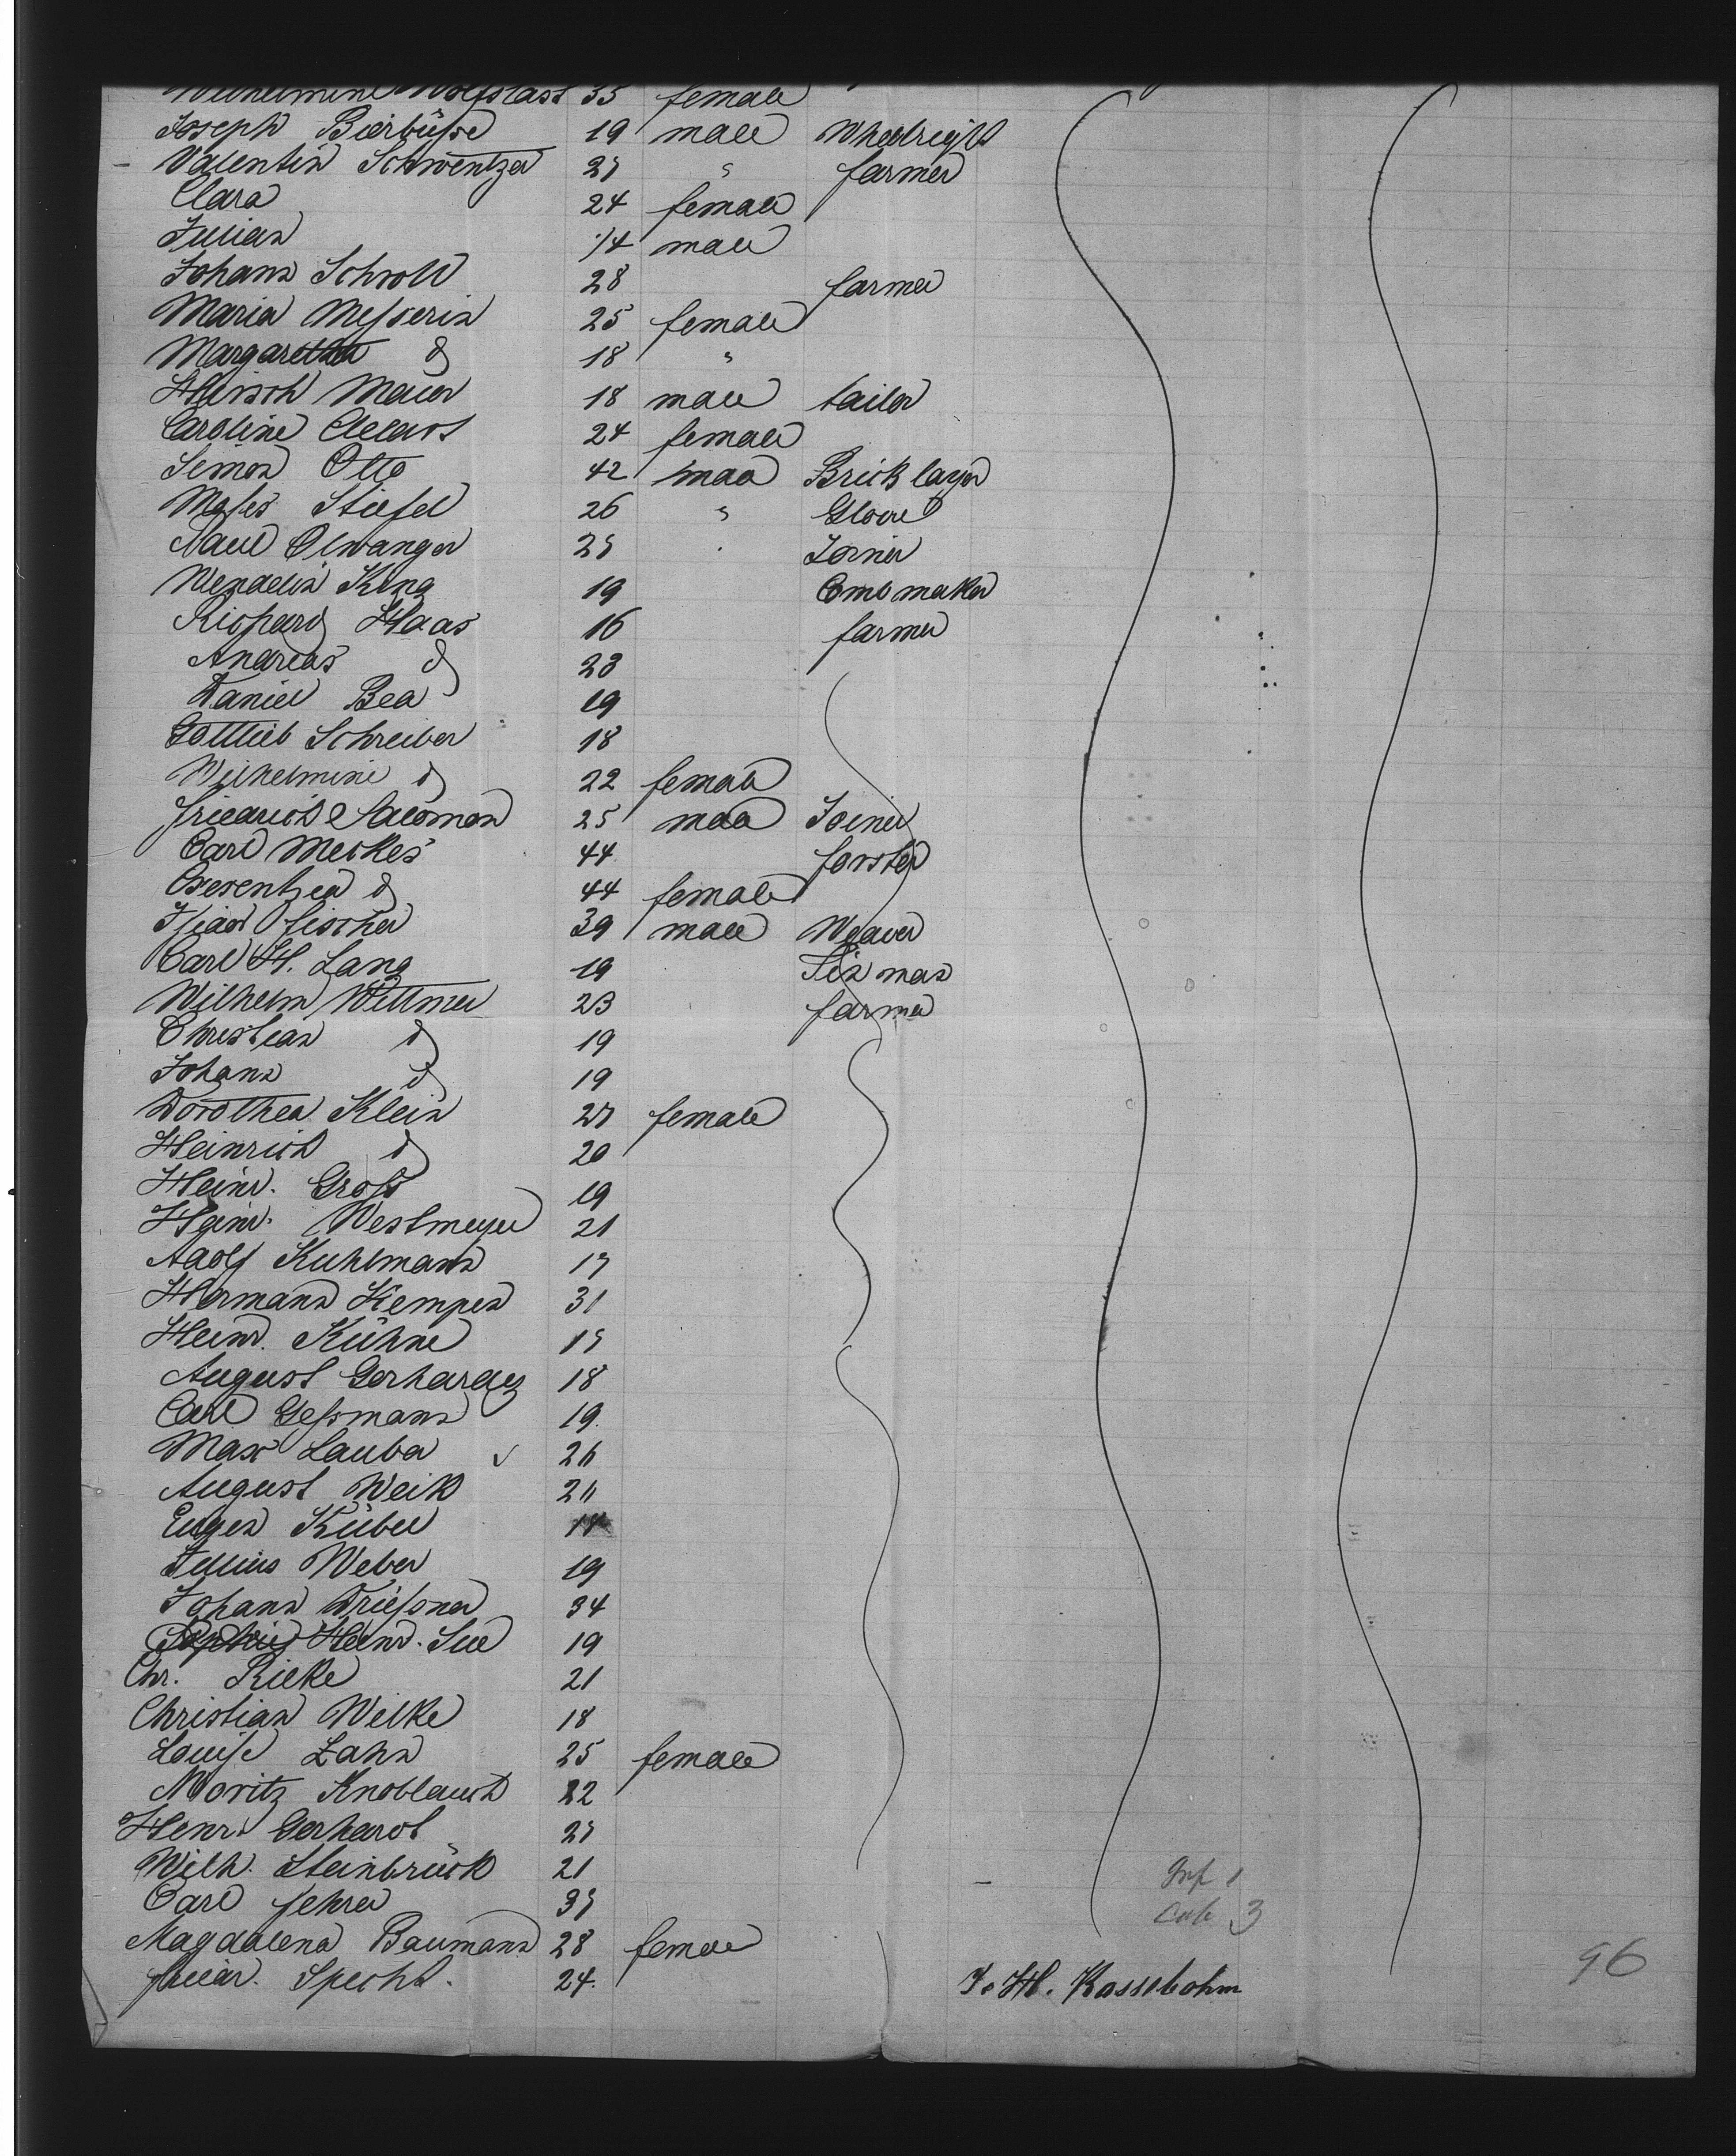 Wilhelmine 33 female
Joseph Bierbüsse 19 male Wheelright
Valentin Schwentzer 27 " farmer
Clara 24 female
Julian 1/4 male
Johann Schroll 28 farmer
Maria Messerin 25 female
Margaretha d 18 "
Hirsch Maier 18 male tailor
Caroline 24 female
Simon Otto 42 male Brick layer
Moses Stiefel 26 "
Paul Olwanger 27
Wendelin King 19 Comb maker
Richard Haas 16 farmer
Andreas d 23
Daniel Bea 19
Gottlieb Schreiber 18
Wilhelmine d 22 female
Friedrich Salomon 25 male Joiner
Carl Meckes 44 forster
Cresentzea d 44 female
Fischer 39 male Weaver
Carl H. Lang 19 Tin man
Wilhelm Wittmer 23 farmer
Christian d 19
Johann d 19
Dorothea Klein 27 female
Heinrich d 20
Heinr. Gross 19
Heinr. Westmeyer 21
Adolf Kuhlmann 17
Hermann Kempen 31
Heinr. Kühne 17
August Gerhardy 18
Carl Gessmann 19
Max Lauba 26
August Weik 20
Eugen Kübel
Julius Weber 19
Johann Driessner 34
Sophie Heinr. Sue 19
Chr. Rieke 21
Christian Wilke 18
Louise Zahn 25 female
Moritz Knoblauch 22
Henr. Gerhardt 27
Wilh. Steinbrück 21
Carl Fehrer 37
Inf 1
Cab 3
Magdalena Baumann 28 female
Friedr. Specht. 24.
J. H. Kassebohm
96